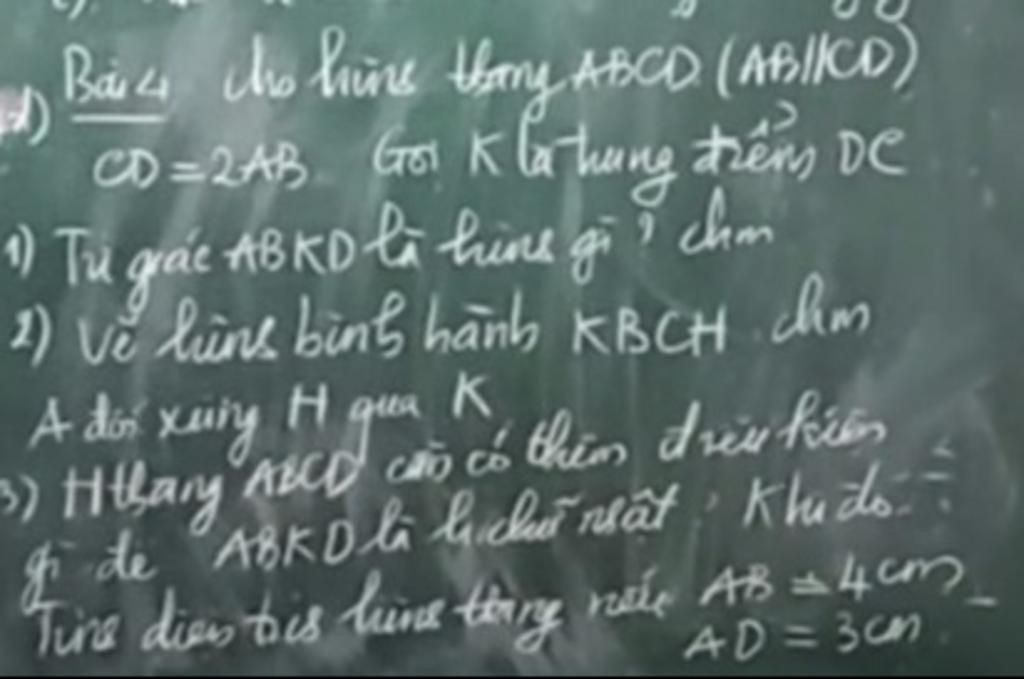 Bài 4 Cho hình thang ABCD (AB//CD)
CD = 2AB Gọi K là trung điểm DC
1) Tứ giác ABKD là hình gì? chm
2) Vẽ hình bình hành KBCH. chm
A đối xứng H qua K
3) H thang ABCD cần có thêm điều kiện
gì để ABKD là h. chữ nhật. Khi đó
Tính diện tích hình thang nếu AB = 4cm
AD = 3cm